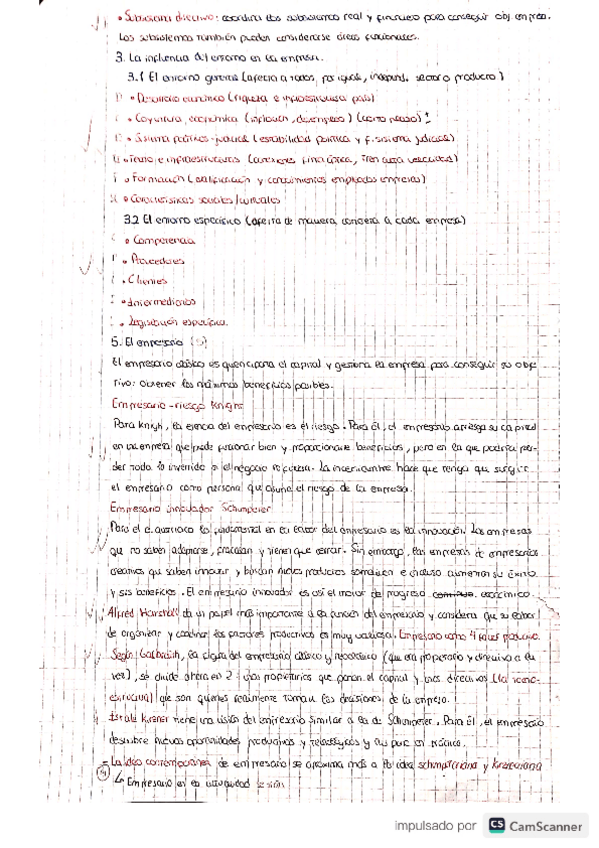 • Subsistema directivo: coordina los subsistemas real y financiero para conseguir obj empresa.
Los subsistemas también pueden considerarse áreas funcionales.
3. La influencia del entorno en la empresa.
3.1 El entorno general (afecta a todos, por igual, independ. sector o producto)
• Desarrollo económico (riqueza e infraestructura país)
• Coyuntura económica (inflación, desempleo)
• Sistema político-judicial (estabilidad política y f. sistema judicial)
e infraestructuras
• Formación (cualificación y conocimientos empleados empresas)
• Características sociales/culturales
3.2 El entorno específico (afecta de manera concreta a cada empresa)
• Competencia
• Proveedores
• Clientes
• Intermediarios
• Legislación específica.
5. El empresario
El empresario clásico es quien aporta el capital y gestiona la empresa para conseguir su obje
tivo: obtener los máximos beneficios posibles.
Empresario-riesgo Knight
Para Knigh, la esencia del empresario es el riesgo. Para él, el empresario arriesga su capital
en una empresa que puede funcionar bien y proporcionarle beneficios, pero en la que podría per-
der todo lo invertido si el negocio no funciona. La incertidumbre hace que tenga que surgir
el empresario como persona que asume el riesgo de la empresa.
Empresario innovador Schumpeter
Para el lo fundamental en la labor del empresario es la innovación. Las empresas
que no saben adaptarse, fracasan y tienen que cerrar. Sin embargo, las empresas de empresarios
creativos que saben innovar y buscan nuevos productos e incluso aumentan su éxito
y sus beneficios. El empresario innovador es así el motor de progreso económico.
Alfred Marshall da un papel más importante a la función del empresario y considera que su labor
de organizar y coordinar los factores productivos es muy valiosa. Empresario como 4º factor productivo.
Según Galbraith, la figura del empresario clásico y neoclásico (que era propietario y directivo a la
vez), se divide ahora en 2: los propietarios que ponen el capital y los directivos (la tecno-
estructura) que son quienes realmente toman las decisiones de la empresa.
Israel Kirzner tiene una visión del empresario similar a la de Schumpeter. Para él, el empresario
descubre nuevas oportunidades productivas y las pone en práctica.
- La idea contemporánea de empresario se aproxima más a la idea schumpeteriana y kirzneriana
↳ Empresario en la actualidad
impulsado por CS CamScanner